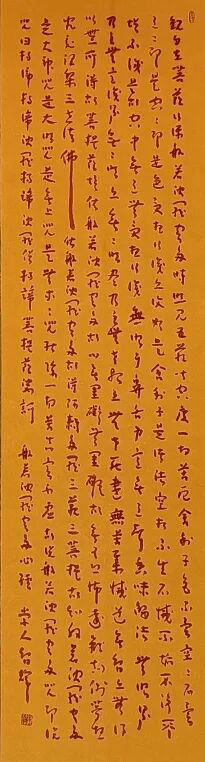 觀自在菩薩行深般若波羅蜜多時照見五蘊皆空度一切苦厄舍利子色不異空空不異色
色即是空空即是色受想行識亦復如是舍利子是諸法空相不生不滅不垢不淨不
增不減是故空中無色無受想行識無眼耳鼻舌身意無色聲香味觸法無眼界
乃至無意識界無無明亦無無明盡乃至無老死亦無老死盡無苦集滅道無智亦無得
以無所得故菩提薩埵依般若波羅蜜多故心無罣礙無罣礙故無有恐怖遠離顛倒夢想
究竟涅槃三世諸佛依般若波羅蜜多故得阿耨多羅三藐三菩提故知般若波羅蜜多
是大神咒是大明咒是無上咒是無等等咒能除一切苦真實不虛故說般若波羅蜜多咒即說
咒曰揭諦揭諦波羅揭諦波羅僧揭諦菩提薩婆訶 般若波羅蜜多心經